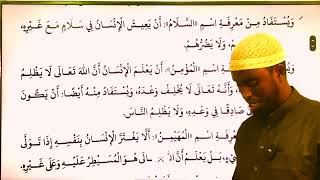 وَيُسْتَفَادُ مِنْ مَعْرِفَةِ اسْمِ «السَّلَامُ»: أَنْ يَعِيشَ الْإِنْسَانُ فِي سَلَامٍ مَعَ غَيْرِهِ،
وَلَا يَضُرَّهُمْ.
وَيُسْتَفَادُ مِنْ مَعْرِفَةِ اسْمِ «الْمُؤْمِنُ»: أَنْ يَعْلَمَ الْإِنْسَانُ أَنَّ اللهَ تَعَالَى لَا يَظْلِمُ
تَعَالَى لَا يُخْلِفُ وَعْدَهُ، وَيُسْتَفَادُ مِنْهُ أَيْضًا: أَنْ يَكُونَ
صَادِقًا فِي وَعْدِهِ، وَلَا يَظْلِمَ النَّاسَ.
مَعْرِفَةِ اسْمِ «الْمُهَيْمِنُ»: أَلَّا يَغْتَرَّ الْإِنْسَانُ بِنَفْسِهِ إِذَا تَوَلَّى
بَلْ يَعْلَمُ أَنَّ هُوَ الْمُسَيْطِرُ عَلَيْهِ وَعَلَى غَيْرِهِ،